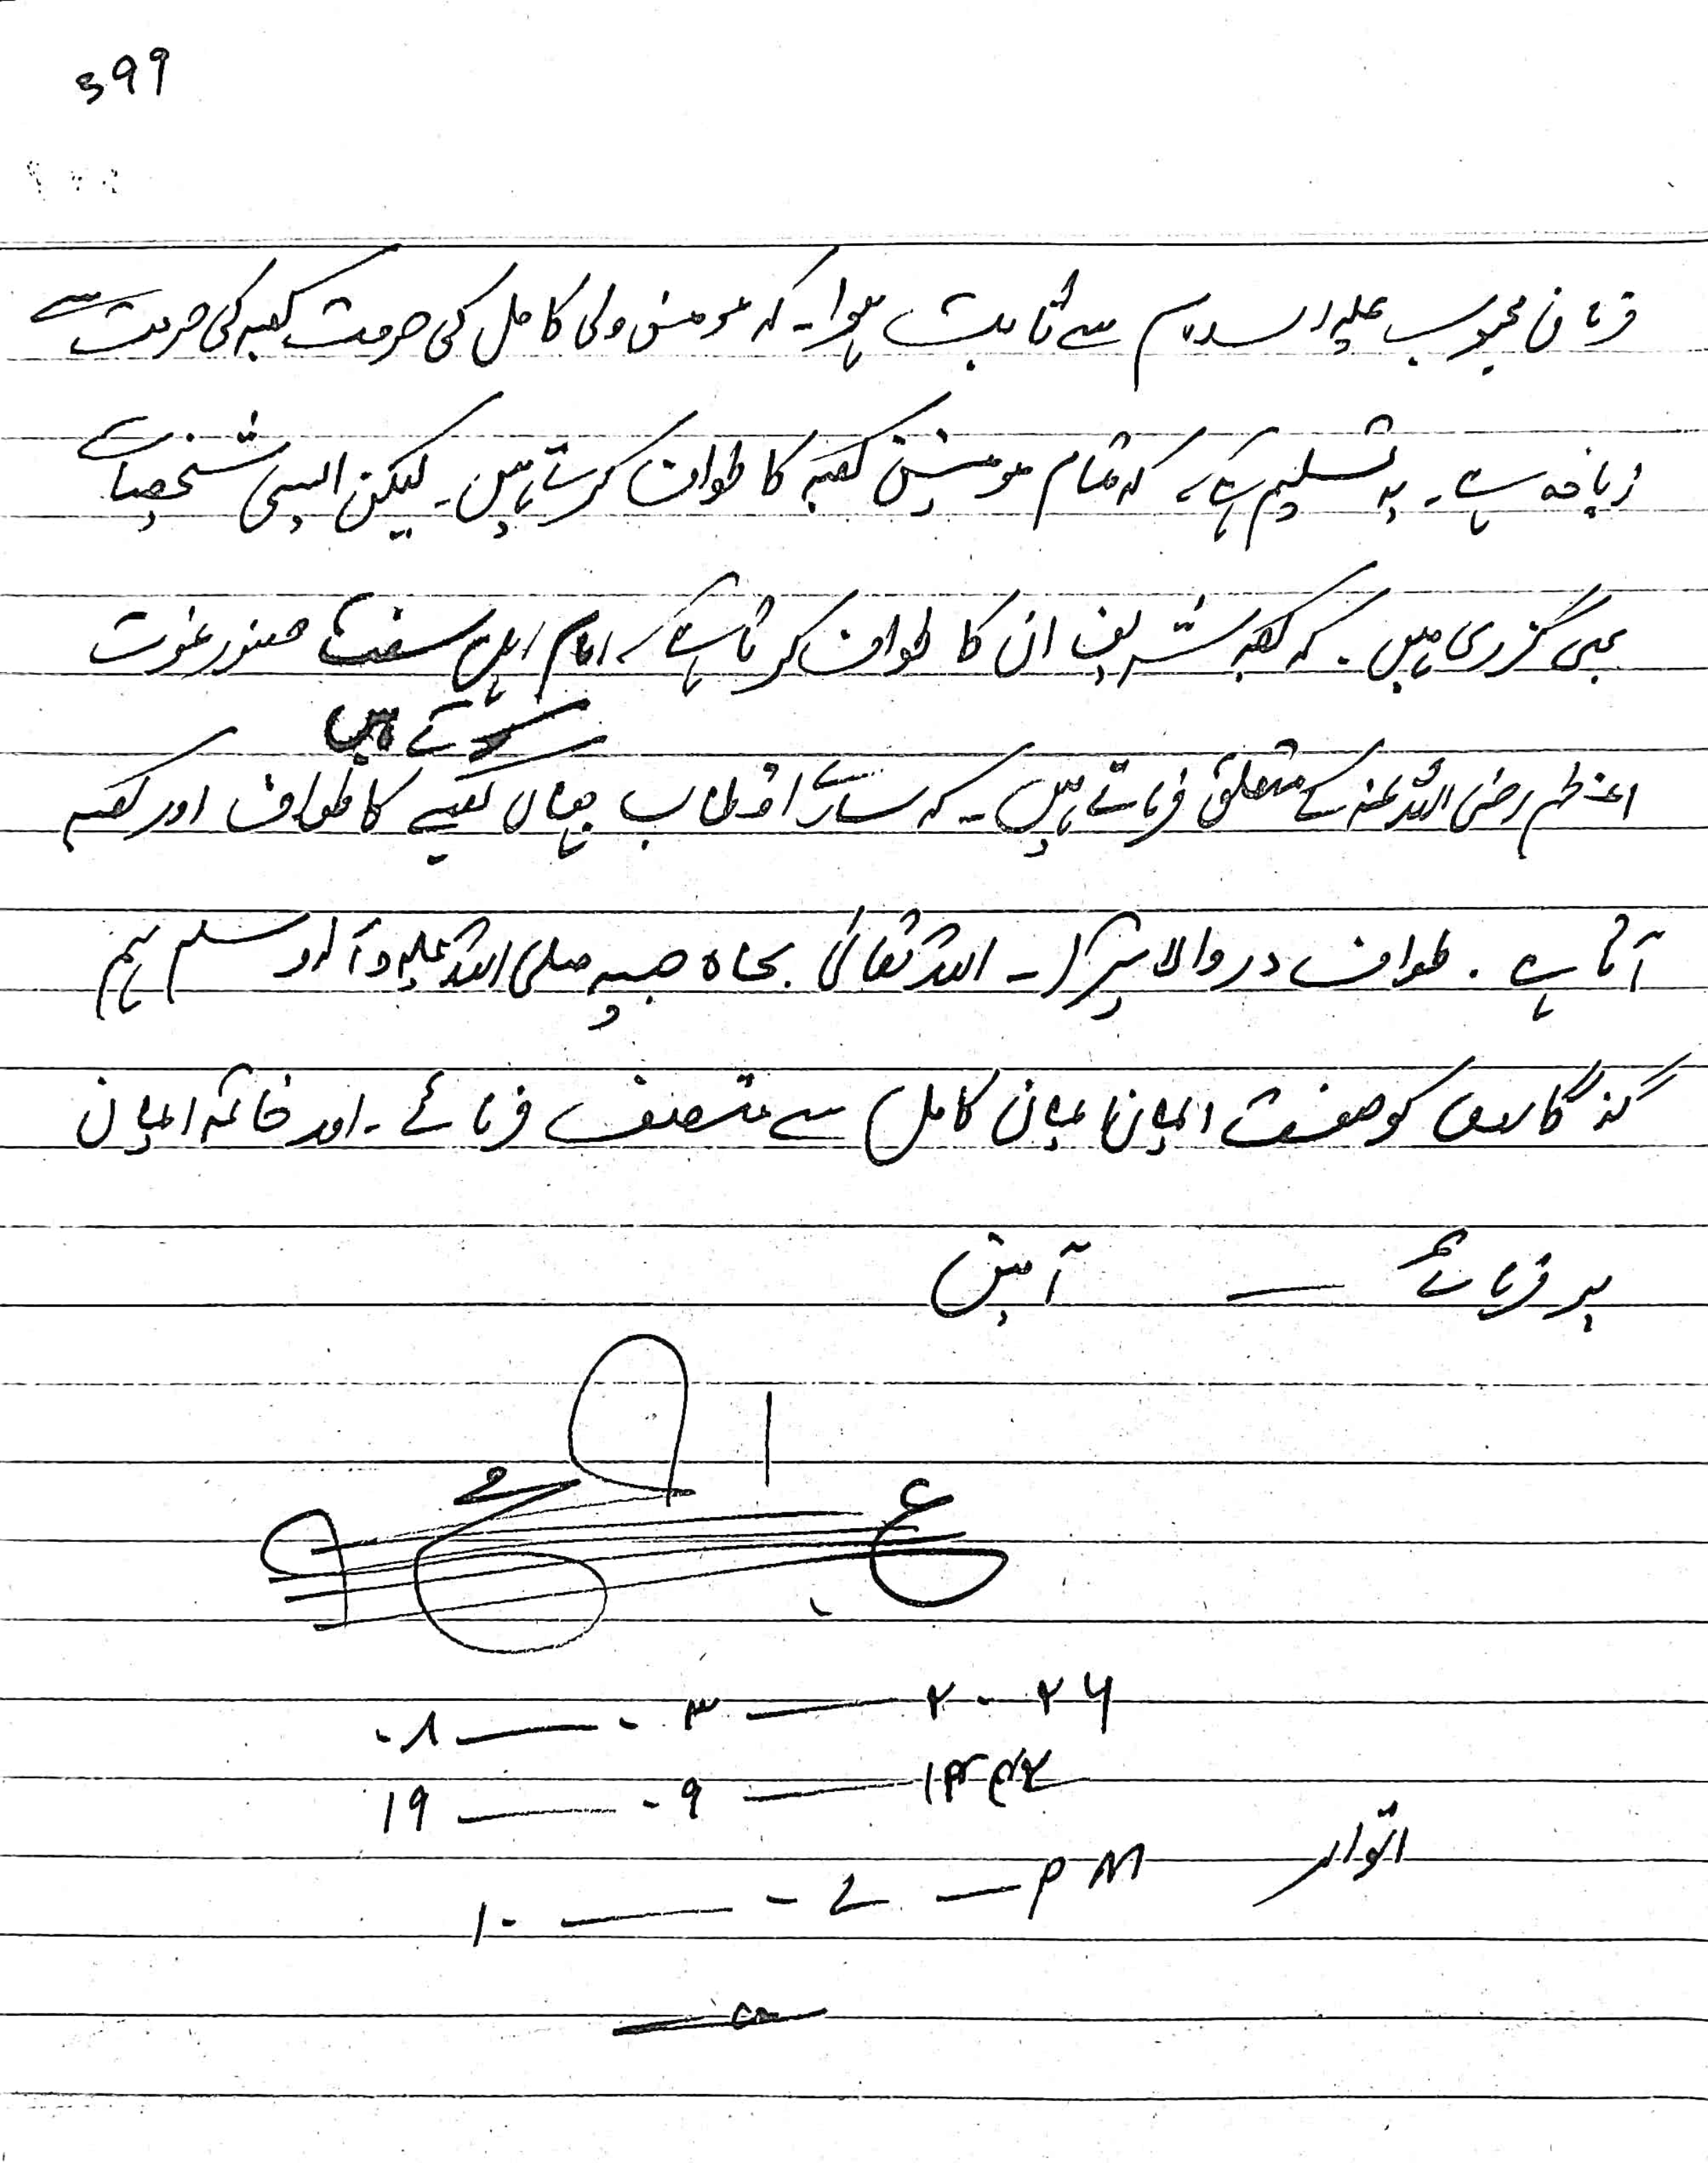 399
فرمان محبوب علیہ السلام سے ثابت ہوا۔ کہ مومن ولی کامل کی حرمت کعبہ کی حرمت سے
زیادہ ہے۔ یہ تسلیم ہے، کہ تمام مومنین کعبہ کا طواف کرتے ہیں۔ لیکن ایسی شخصیات
بھی گزری ہیں۔ کہ کعبہ شریف ان کا طواف کرتا ہے، امام اہل سنت حضور غوث
کرتے ہیں
اعظم رضی اللہ عنہ کے متعلق فرماتے ہیں۔ کہ سارے اقطاب جہاں کعبے کا طواف اور کعبہ
آتا ہے۔ طواف در والا تیرا۔ اللہ تعالیٰ بجاہ حبیبہ صلی اللہ علیہ وآلہ وسلم ہم
گنہگاروں کو صفت ایمان کامل سے متصف فرمائے۔ اور خاتمہ ایمان
پر فرمائے — آمین
۰۸ — ۰۳ — ۲۰۲۶
۱۹ — ۰۹ — ۱۴۴۷
۱۰ — ۰۷ — PM اتوار